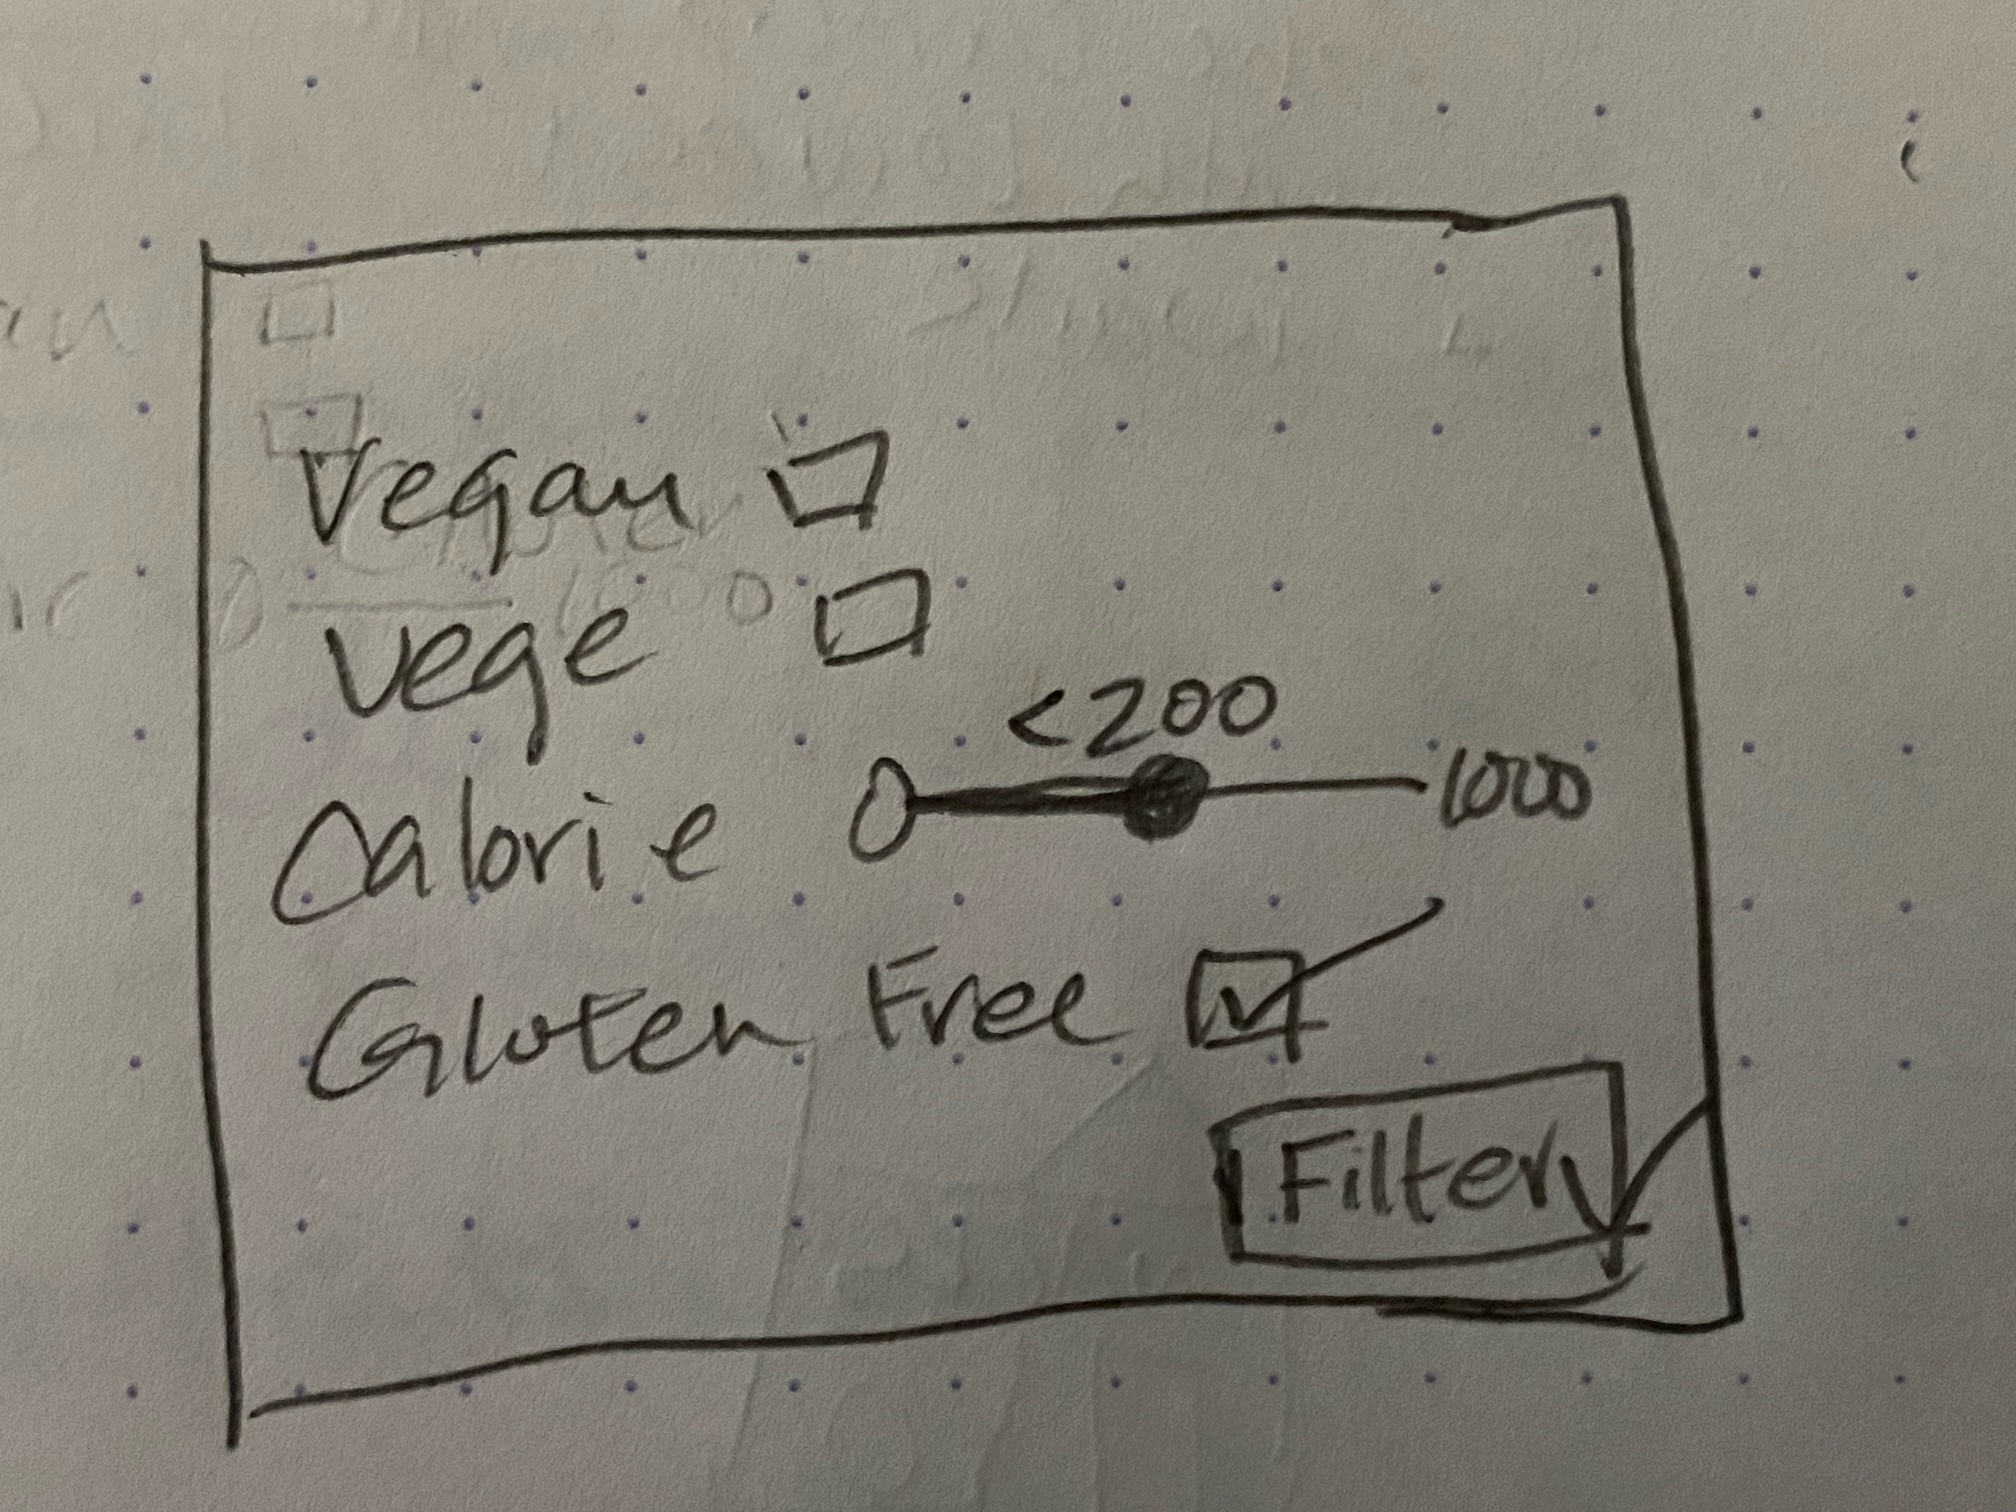 Vegan
Vege
<200
Calorie 0 1000
Gluten Free
Filter